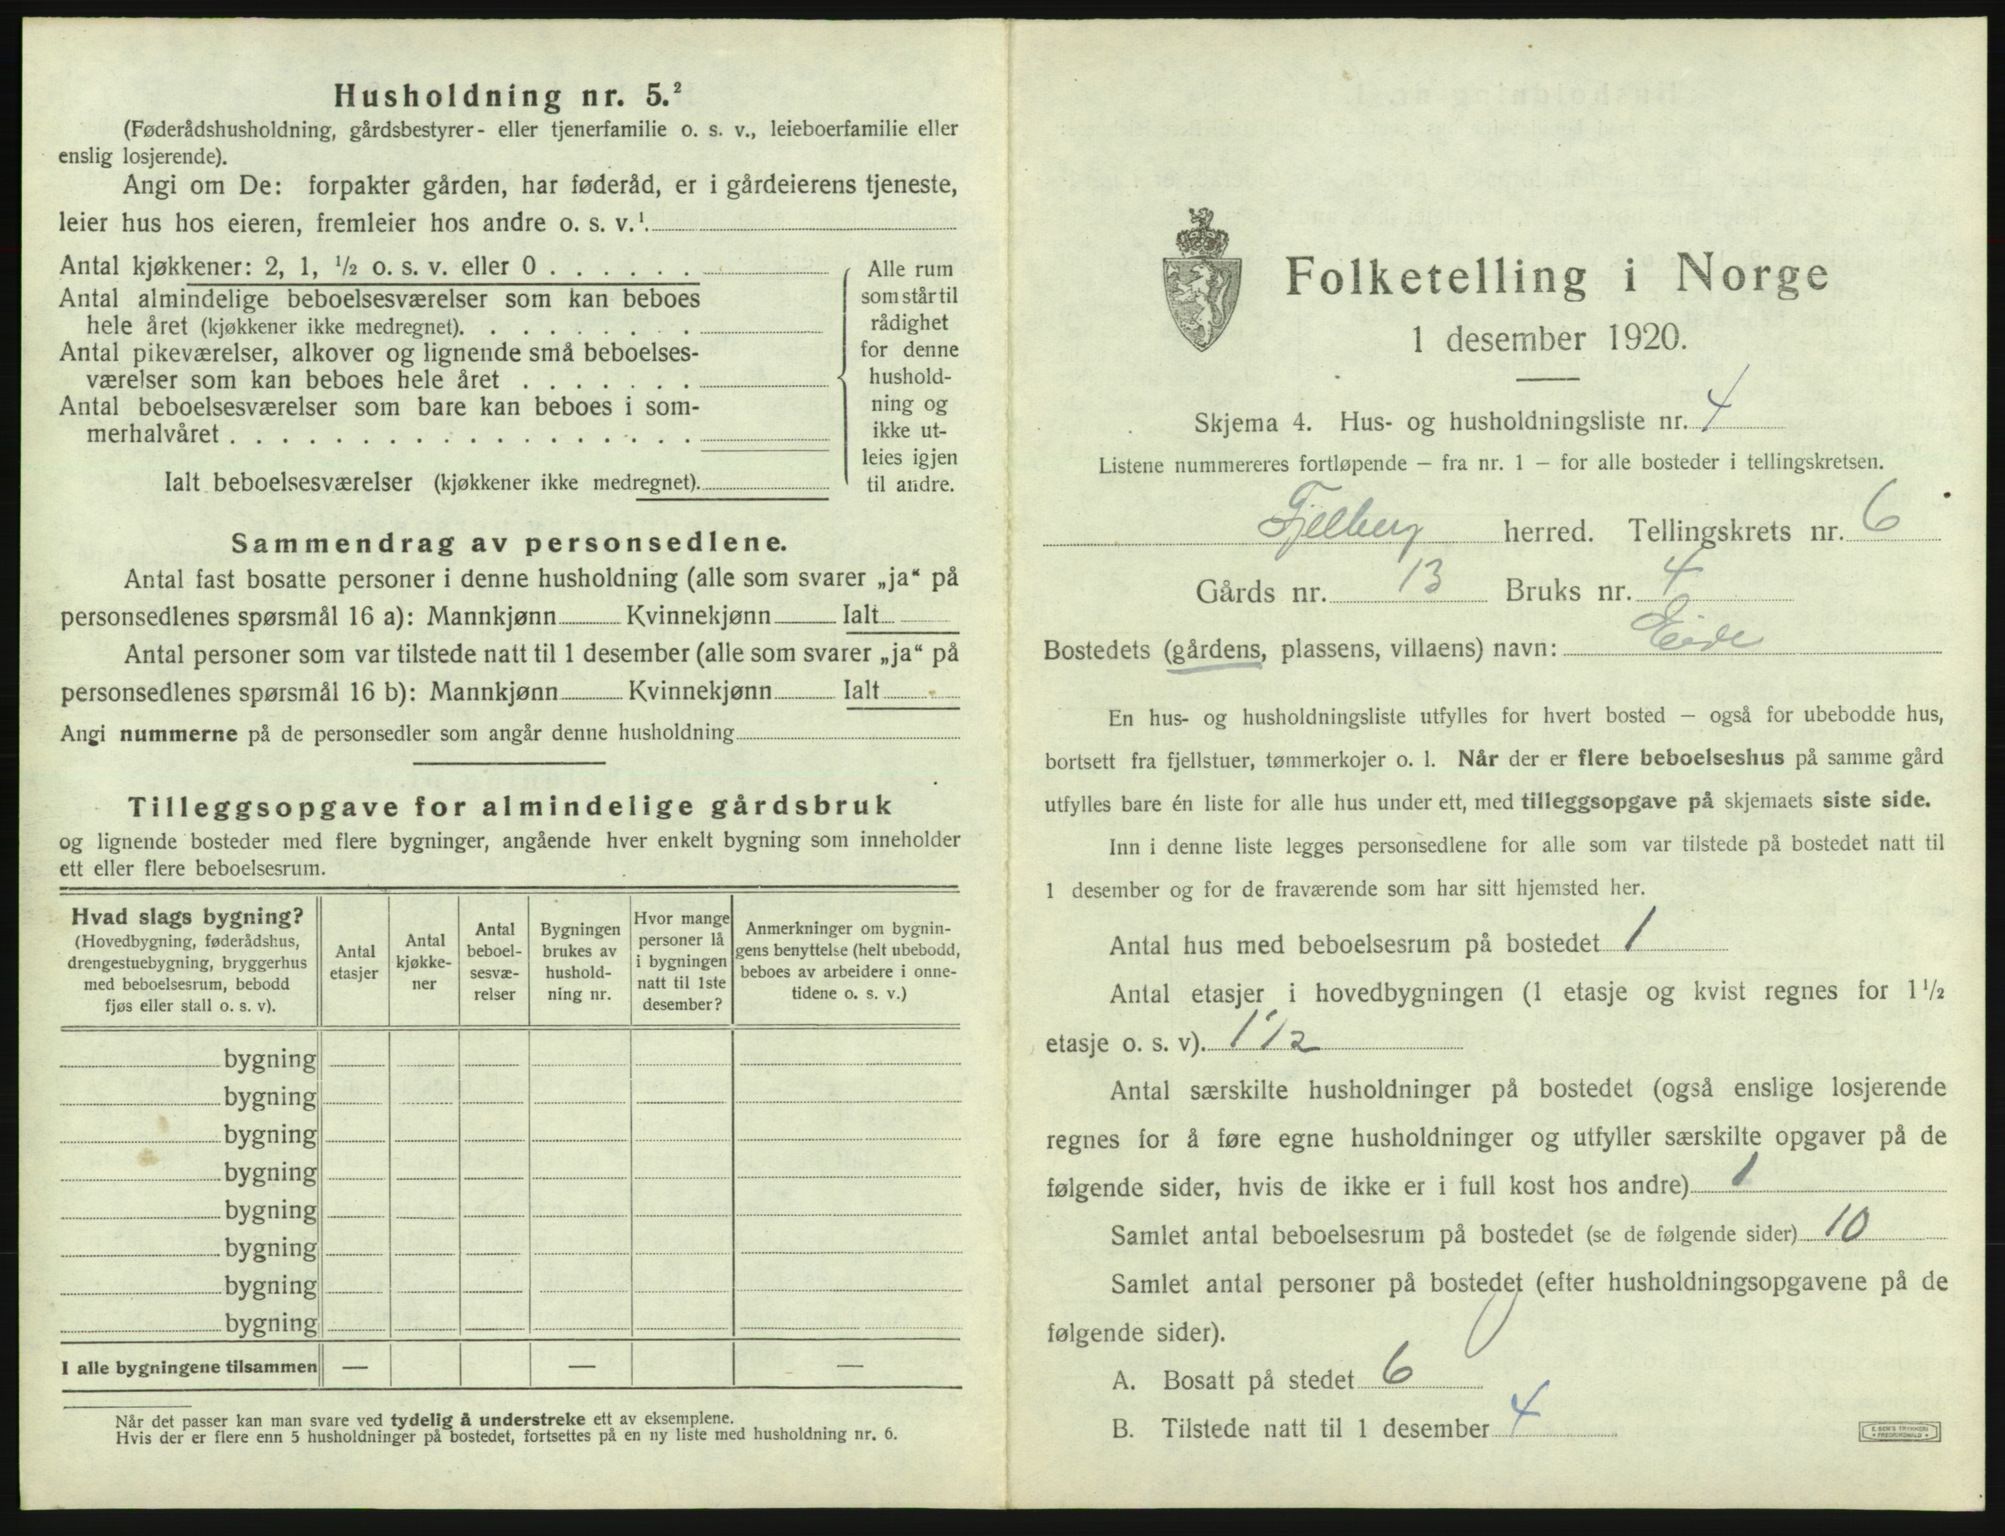 Husholdning nr. 5.²
(Føderådshusholdning, gårdsbestyrer- eller tjenerfamilie o. s. v., leieboerfamilie eller
enslig losjerende).
Angi om De: forpakter gården, har føderåd, er i gårdeierens tjeneste,
leier hus hos eieren, fremleier hos andre o. s. v.¹
Antal kjøkkener: 2, 1, ½ o. s. v. eller 0 . . . . . .
Antal almindelige beboelsesværelser som kan beboes
hele året (kjøkkener ikke medregnet). . . . . . . . .
Antal pikeværelser, alkover og lignende små beboelses-
værelser som kan beboes hele året . . . . . . .
Antal beboelsesværelser som bare kan beboes i som-
merhalvåret . . . . . . . . . . . . . . . . . .
Ialt beboelsesværelser (kjøkkener ikke medregnet).
Alle rum
som står til
rådighet
for denne
hushold-
ning og
ikke ut-
leies igjen
til andre.
Sammendrag av personsedlene.
Antal fast bosatte personer i denne husholdning (alle som svarer „ja“ på
personsedlenes spørsmål 16 a): Mannkjønn Kvinnekjønn Ialt
Antal personer som var tilstede natt til 1 desember (alle som svarer „ja“ på
personsedlenes spørsmål 16 b): Mannkjønn Kvinnekjønn Ialt
Angi nummerne på de personsedler som angår denne husholdning
Tilleggsopgave for almindelige gårdsbruk
og lignende bosteder med flere bygninger, angående hver enkelt bygning som inneholder
ett eller flere beboelsesrum.
Hvad slags bygning?
(Hovedbygning, føderådshus,
drengestuebygning, bryggerhus
med beboelsesrum, bebodd
fjøs eller stall o. s. v).
Antal
etasjer
Antal
kjøkke-
ner
Antal
beboel-
sesvæ-
relser
Bygningen
brukes av
hushold-
ning nr.
Hvor mange
personer lå
i bygningen
natt til 1ste
desember?
Anmerkninger om bygnin-
gens benyttelse (helt ubebodd,
beboes av arbeidere i onne-
tidene o. s. v.)
bygning
bygning
bygning
bygning
bygning
bygning
bygning
bygning
I alle bygningene tilsammen — — —
Når det passer kan man svare ved tydelig å understreke ett av eksemplene.
Hvis der er flere enn 5 husholdninger på bostedet, fortsettes på en ny liste med husholdning nr. 6.
Folketelling i Norge
1 desember 1920.
Skjema 4. Hus- og husholdningsliste nr. 4
Listene nummereres fortløpende — fra nr. 1 — for alle bosteder i tellingskretsen.
Fjelberg herred. Tellingskrets nr. 6
Gårds nr. 13 Bruks nr. 4
Bostedets (gårdens, plassens, villaens) navn: Eide
En hus- og husholdningsliste utfylles for hvert bosted — også for ubebodde hus,
bortsett fra fjellstuer, tømmerkojer o. l. Når der er flere beboelseshus på samme gård
utfylles bare én liste for alle hus under ett, med tilleggsopgave på skjemaets siste side.
Inn i denne liste legges personsedlene for alle som var tilstede på bostedet natt til
1 desember og for de fraværende som har sitt hjemsted her.
Antal hus med beboelsesrum på bostedet 1
Antal etasjer i hovedbygningen (1 etasje og kvist regnes for 1½
etasje o. s. v). 1½
Antal særskilte husholdninger på bostedet (også enslige losjerende
regnes for å føre egne husholdninger og utfyller særskilte opgaver på de
følgende sider, hvis de ikke er i full kost hos andre) 1
Samlet antal beboelsesrum på bostedet (se de følgende sider) 10
Samlet antal personer på bostedet (efter husholdningsopgavene på de
følgende sider).
A. Bosatt på stedet 6
B. Tilstede natt til 1 desember 4